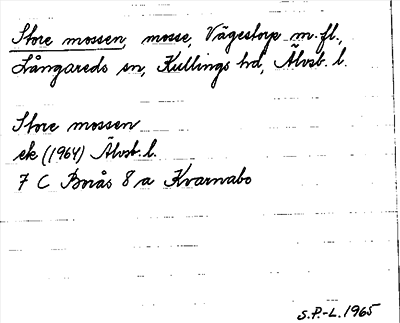 Store mossen, mosse, Vägestorp m.fl.,
Långareds sn, Kullings hd, Älvsb. l.
Store mossen
ek (1964) Älvsb. l.
7 C Borås 8 a Kvarnabo
S.P.-L. 1965